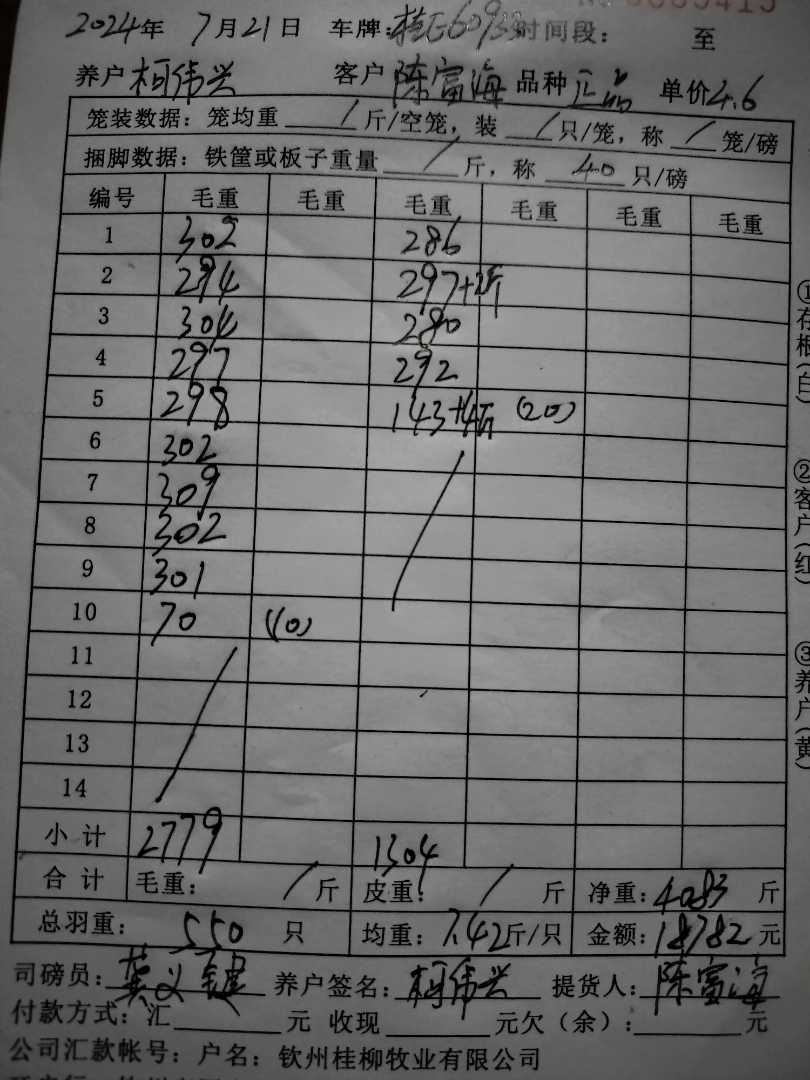 2024年 7月21日 车牌: 时间段: 至
养户 柯伟兴 客户 陈富海 品种 正品 单价4.6
笼装数据: 笼均重 / 斤/空笼, 装 / 只/笼, 称 / 笼/磅
捆脚数据: 铁筐或板子重量 / 斤, 称 40 只/磅
编号 毛重 毛重 毛重 毛重 毛重 毛重
1 302 286
2 294 297+2斤
3 304 280
4 297 292
5 298 143+4斤 (20)
6 302
7 309
8 302
9 301
10 70 (10)
11
12
13
14
小计 2779 1304
合计 毛重: / 斤 皮重: / 斤 净重: 4083 斤
总羽重: 550 只 均重: 7.42斤/只 金额: 18782 元
司磅员: 养户签名: 柯伟兴 提货人: 陈富海
付款方式: 汇 元 收现 元欠(余): 元
公司汇款帐号: 户名: 钦州桂柳牧业有限公司
①存根(白)
②客户(红)
③养户(黄)